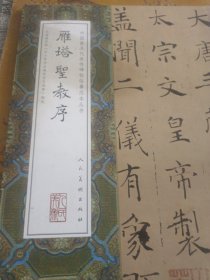 太宗文皇帝製
蓋聞二儀有象
雁塔聖教序
人民美術出版社